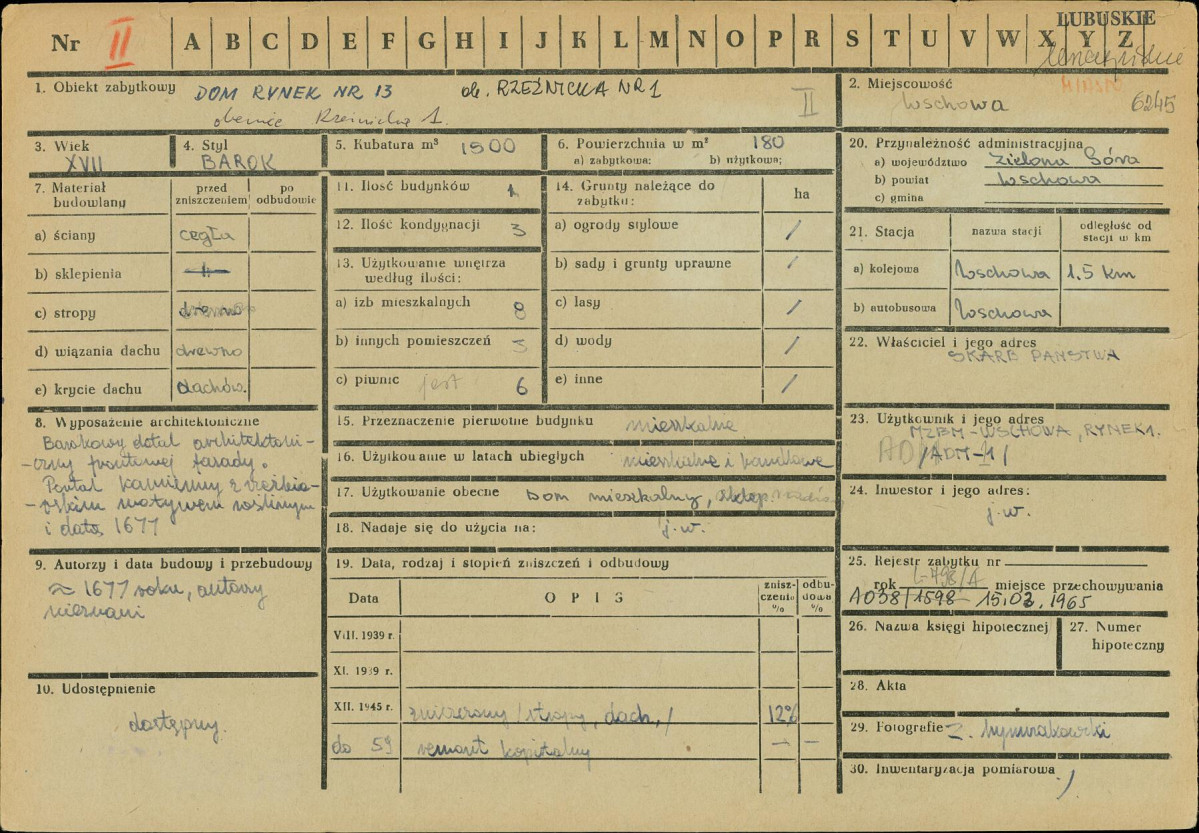 Nr II A B C D E F G H I J K L M N O P R S T U V W X Y Z
LUBUSKIE
1. Obiekt zabytkowy DOM RYNEK NR 13 ob. RZEŹNICKA NR 1
obecnie Rzeźnicka 1.
II
2. Miejscowość
MIASTO
Wschowa 6245
3. Wiek
XVII
4. Styl
BAROK
5. Kubatura m³ 1500
6. Powierzchnia w m² 180
a) zabytkowa: b) użytkowa:
20. Przynależność administracyjna
a) województwo Zielona Góra
b) powiat Wschowa
c) gmina
7. Materiał budowlany
przed zniszczeniem
po odbudowie
a) ściany cegła
b) sklepienia
c) stropy drewno
d) wiązania dachu drewno
e) krycie dachu dachów.
11. Ilość budynków 1
12. Ilość kondygnacji 3
13. Użytkowanie wnętrza
według ilości:
a) izb mieszkalnych 8
b) innych pomieszczeń 3
c) piwnic jest 6
14. Grunty należące do
zabytku:
ha
a) ogrody stylowe /
b) sady i grunty uprawne /
c) lasy /
d) wody /
e) inne /
21. Stacja
nazwa stacji
odległość od
stacji w km
a) kolejowa Wschowa 1.5 km
b) autobusowa Wschowa
22. Właściciel i jego adres
SKARB PAŃSTWA
8. Wyposażenie architektoniczne
Barokowy detal architektoni-
-czny frontowej fasady.
Portal kamienny z rzeźbia-
-rskim motywem roślinnym
i datą 1677
15. Przeznaczenie pierwotne budynku mieszkalne
16. Użytkowanie w latach ubiegłych mieszkalne i handlowe
17. Użytkowanie obecne Dom mieszkalny, sklep
18. Nadaje się do użycia na: j.w.
23. Użytkownik i jego adres
MZBM-WSCHOWA, RYNEK 1.
/ADM-1/
24. Inwestor i jego adres:
j.w.
9. Autorzy i data budowy i przebudowy
≈ 1677 roku, autorzy
nieznani
19. Data, rodzaj i stopień zniszczeń i odbudowy
Data
OPIS
zniszczenia %
odbudowa %
VIII. 1939 r.
XI. 1939 r.
XII. 1945 r. zniszczony /stropy, dach,/ 12%
do 59 remont kapitalny — —
25. Rejestr zabytku nr
L-798/A
rok miejsce przechowywania
1038/1598 - 15.02.1965
26. Nazwa księgi hipotecznej
27. Numer
hipoteczny
10. Udostępnienie
dostępny.
28. Akta
29. Fotografie
30. Inwentaryzacja pomiarowa /